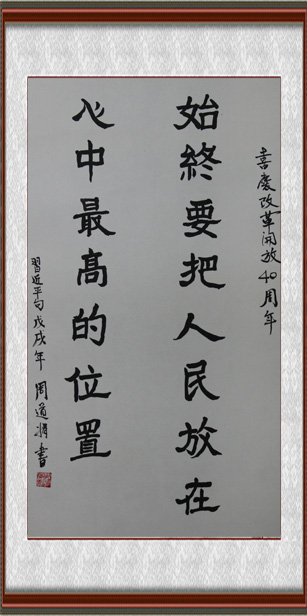 喜慶改革開放40周年
始終要把人民放在
心中最高的位置
習近平句戊戌年周道將書